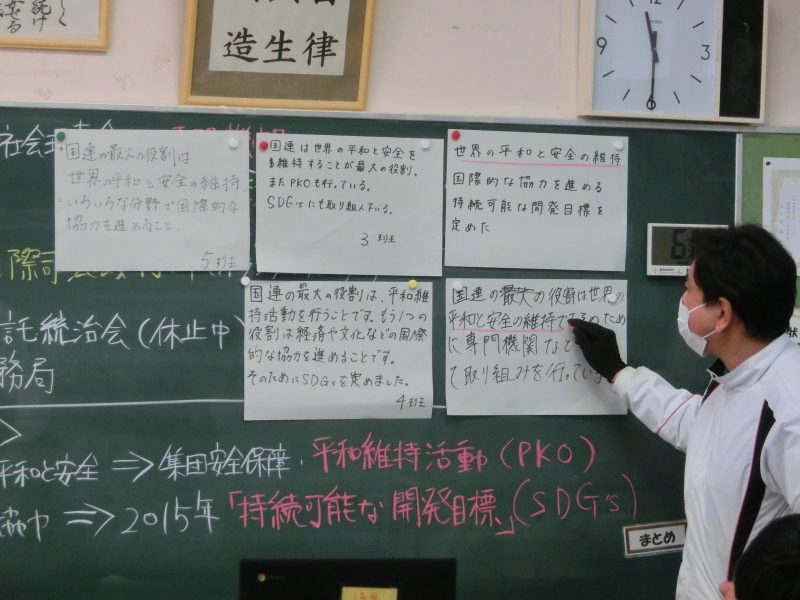 続け
律生
造
国連の最大の役割は
世界の平和と安全の維持
いろいろな分野で国際的な
協力を進めること.
5班
国連は世界の平和と安全を
維持することが最大の役割。
またPKOも行っている。
SDG'sにも取り組んでいる。
3班
世界の平和と安全の維持
国際的な協力を進める
持続可能な開発目標を
定めた
国連の最大の役割は、平和維
持活動を行うことです。もう1つの
役割は経済や文化などの国際
的な協力を進めることです。
そのためにSDGsを定めました。
4班
国連の最大の役割は世界の
平和と安全の維持で
のため
に専門機関など
て取り組みを行ってい
託統治会(休止中)
務局
平和と安全⇒集団安全保障.平和維持活動(PKO)
⇒2015年「持続可能な開発目標」(SDG's)
まとめ
12
1
2
3
4
5
7
8
9
10
11